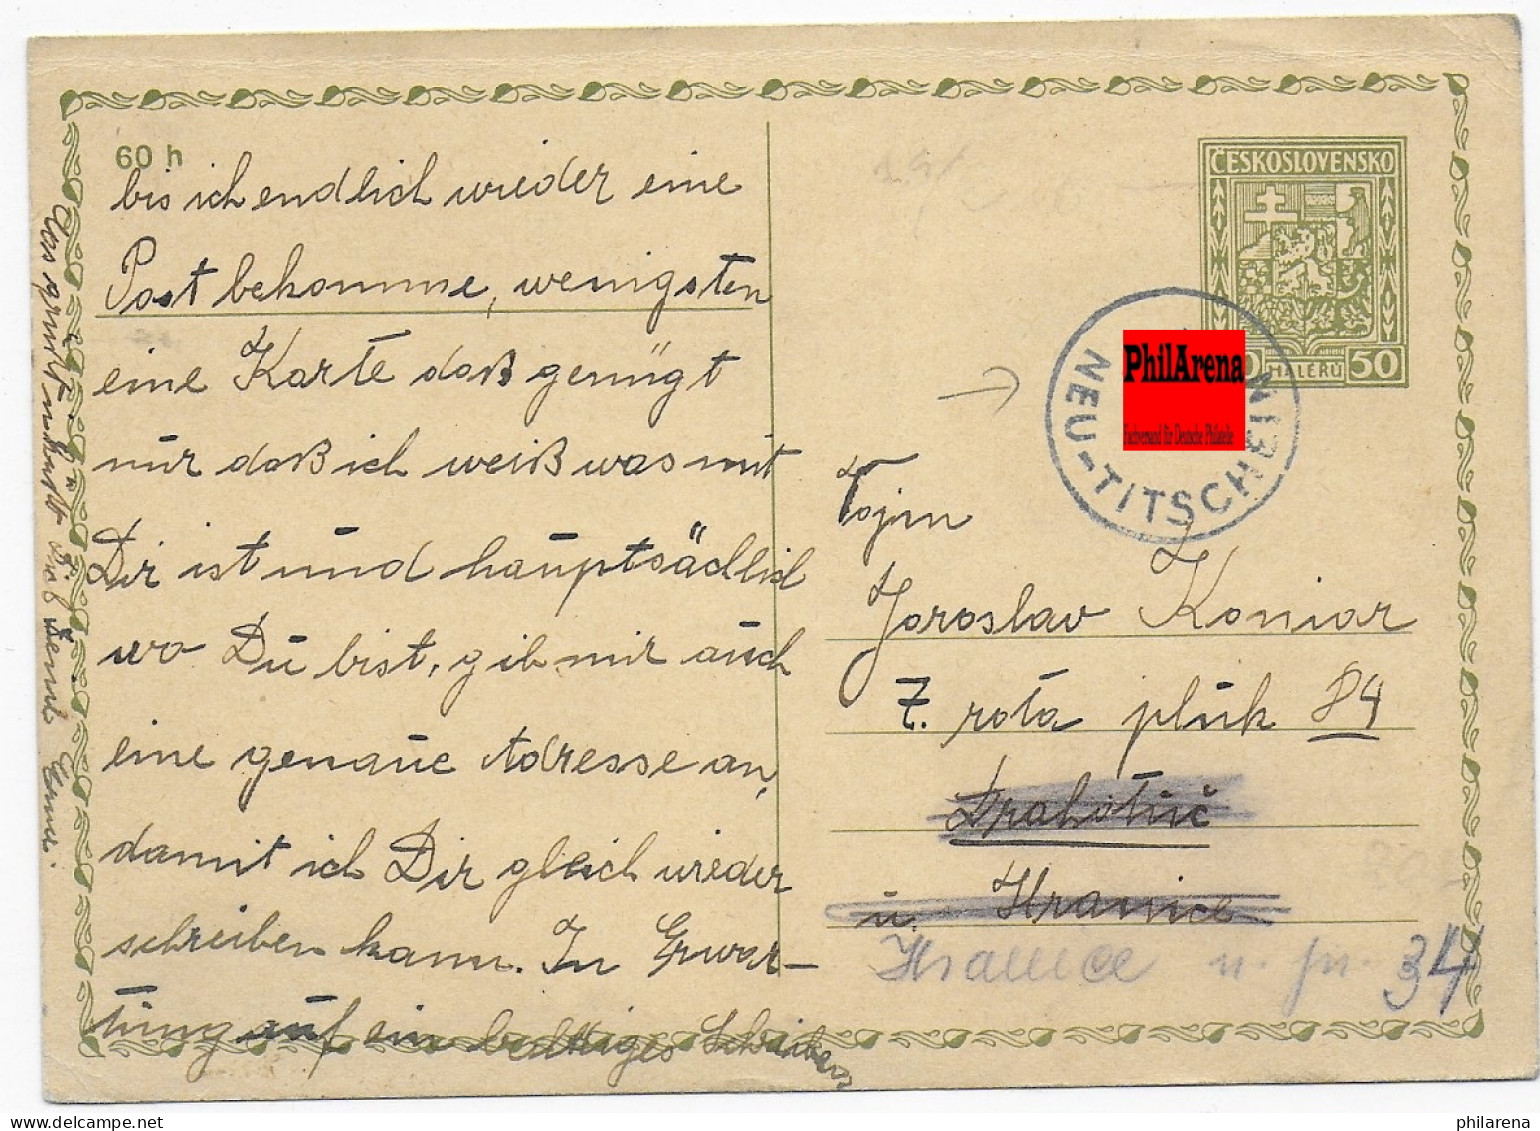 60 h
bis ich endlich wieder eine
Post bekomme, wenigsten
eine Karte daß genügt
nur daß ich weiß was mit
Dir ist und hauptsächlich
wo Du bist, gib mir auch
eine genaue Adresse an,
damit ich Dir gleich wieder
schreiben kann. In Erwar-
tung auf ein baldiges Schreiben
ČESKOSLOVENSKO
50 HALÉŘŮ 50
NEU-TITSCHEIN
PhilArena
Fachversand für Deutsche Philatelie
Vojin
Jaroslav Koniar
7. rota pluk 84
Drahotuč
u. Hranice
Hranice n. pr. 34
philarena